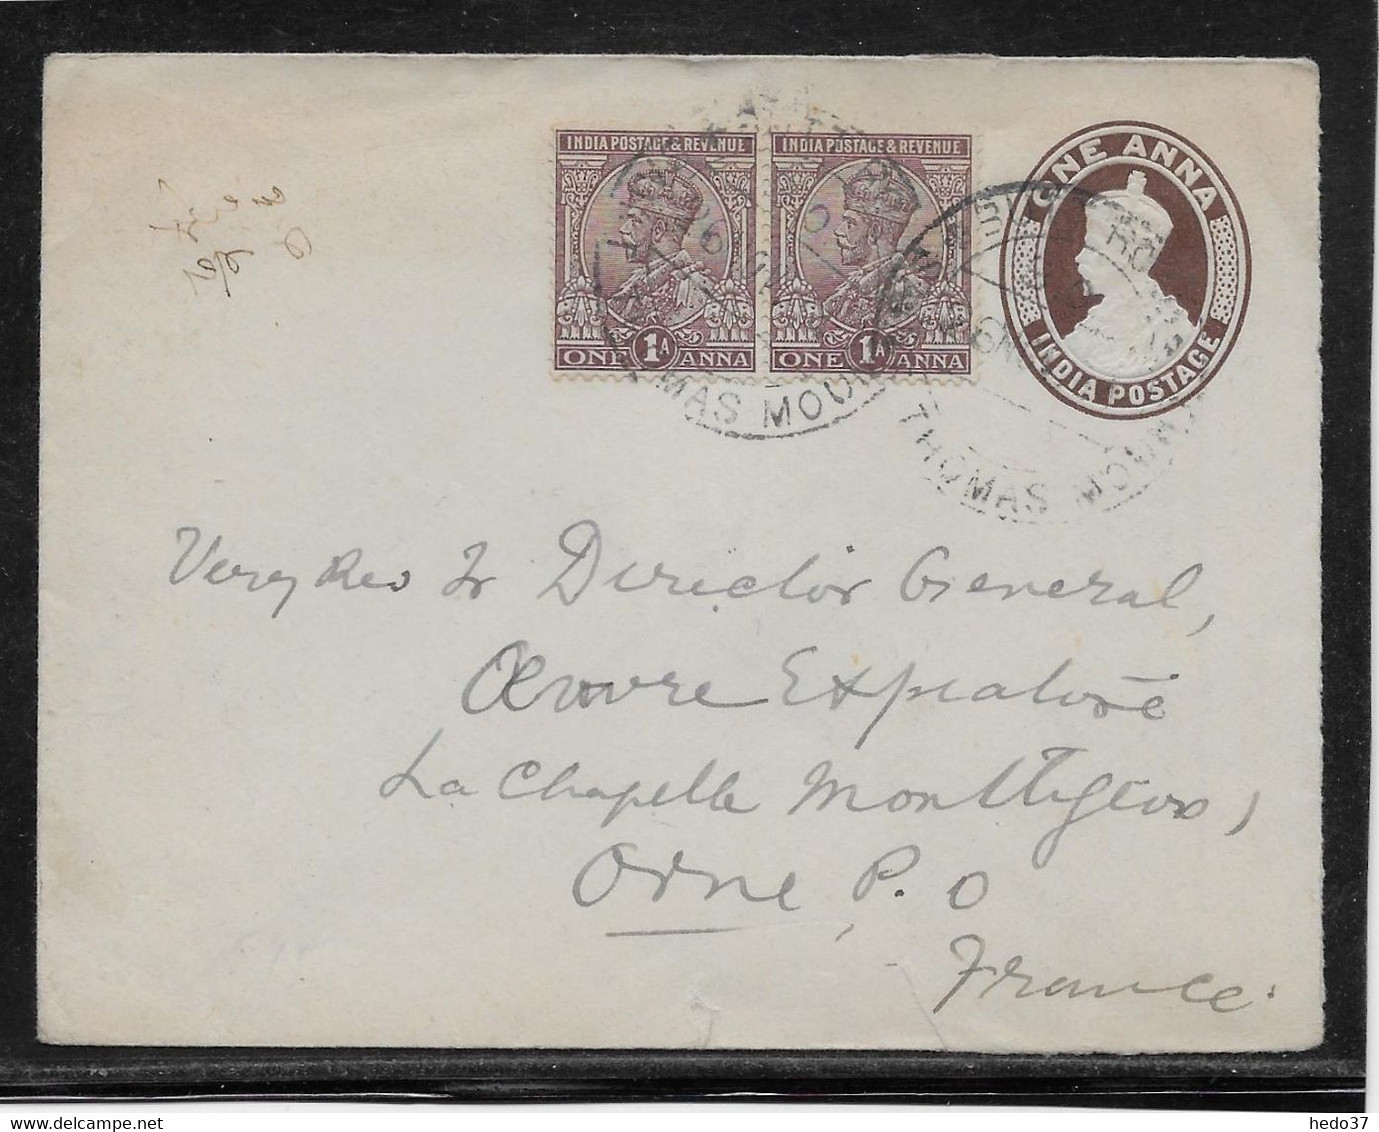 INDIA POSTAGE & REVENUE
ONE 1A ANNA
INDIA POSTAGE & REVENUE
ONE 1A ANNA
ONE ANNA
INDIA POSTAGE
MAS MOU
THOMAS MOUN
Very Rev Fr Director General,
Œuvre Expiatoire
La Chapelle Montligeon,
Orne, P. O
France.
hedo37